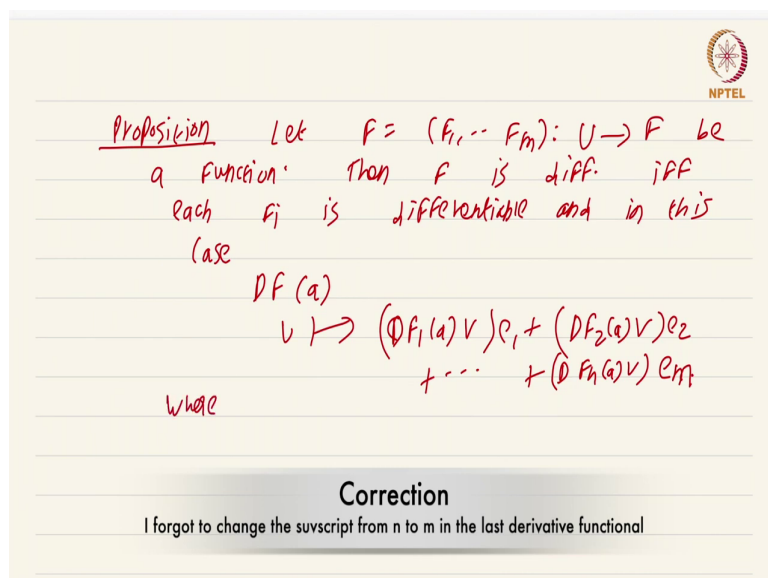 NPTEL
Proposition Let F = (F1, -- Fm): U → F be
a function. Then F is diff. iff
each Fj is differentiable and in this
case
DF(a)
v ↦ (DF1(a)v)e1 + (DF2(a)v)e2
+ ··· + (DFn(a)v)em
where
Correction
I forgot to change the suvscript from n to m in the last derivative functional